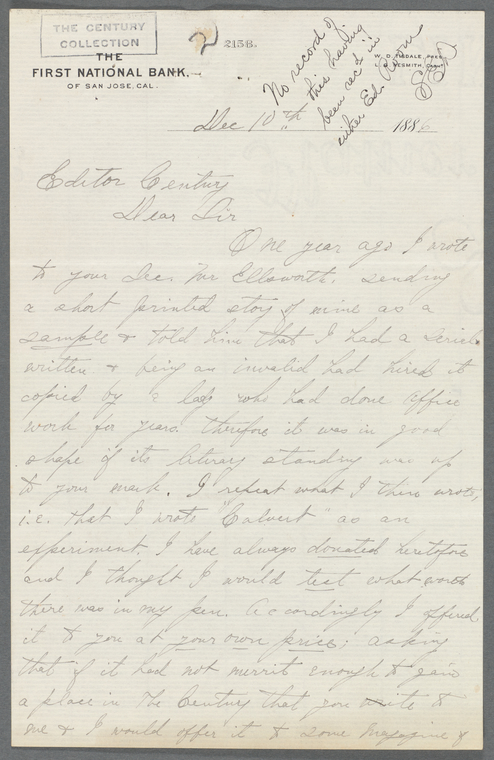 THE CENTURY
COLLECTION
2 2158.
THE
FIRST NATIONAL BANK.
OF SAN JOSE, CAL.
W. D. TISDALE, PRES.
L. NESMITH,
No record of
this having
been rec'd in
either Ed. Room
Dec 10th 1886
Editor Century
Dear Sir
One year ago I wrote
to your Sec. Mr Ellsworth. sending
a short printed story of mine as a
sample & told him that I had a serial
written & being an invalid had hired it
copied by a lady who had done office
work for years. therefore it was in good
shape if its literary standing was up
to your mark. I repeat what I then wrote,
i.e. that I wrote "Calvert" as an
experiment. I have always donated heretofore
and I thought I would test what worth
there was in my pen. Accordingly I offered
it to you at your own price; asking
that if it had not merrit enough to gain
a place in The Century that you write to
me & I would offer it to some Magazine of